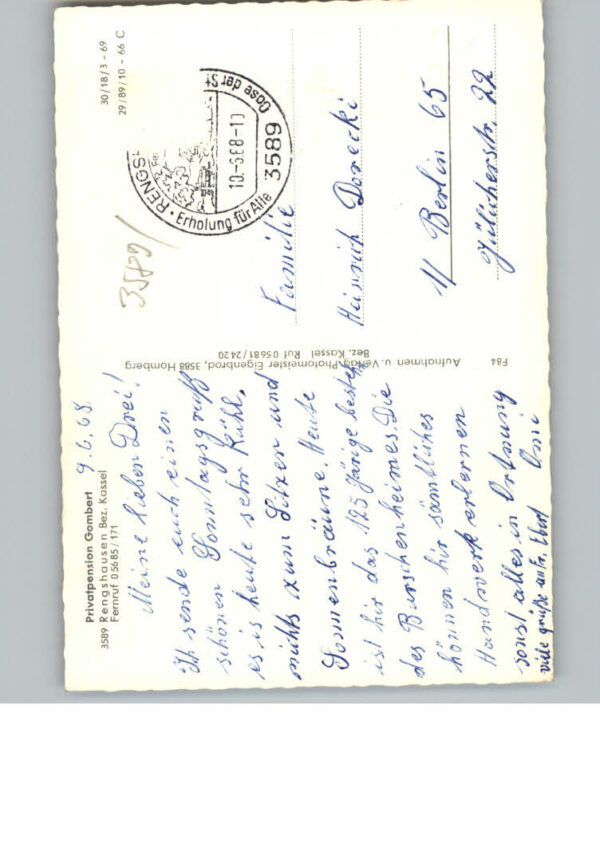 Privatpension Gombert
3589 Rengshausen Bez. Kassel
Fernruf 0 56 85 / 171
9.6.68.
Meine lieben Drei!
Ich sende euch einen
schönen Sonntagsgruß
es is heute sehr Kühl,
nichts zum Sitzen und
Sonnenbräune. Heute
ist hir das 125 järige besteh
des Burschenheimes. Die
können hir sämtliches
Handwerk erlernen
sonst alles in Ortnung
viele grüße an Fr. Omi
Aufnahmen u. Verlag Photomeister Eigenbrod, 3588 Homberg
Bez. Kassel Ruf 0 56 81 / 24 20
F 84
30/18/3 - 69
29/89/10 - 66 C
3589
RENGS
Oase der St
3589
10.-6.68-10
Erholung für Alle
Familie
Heinrich Dorecki
1/ Berlin 65
Jülicherstr. 22